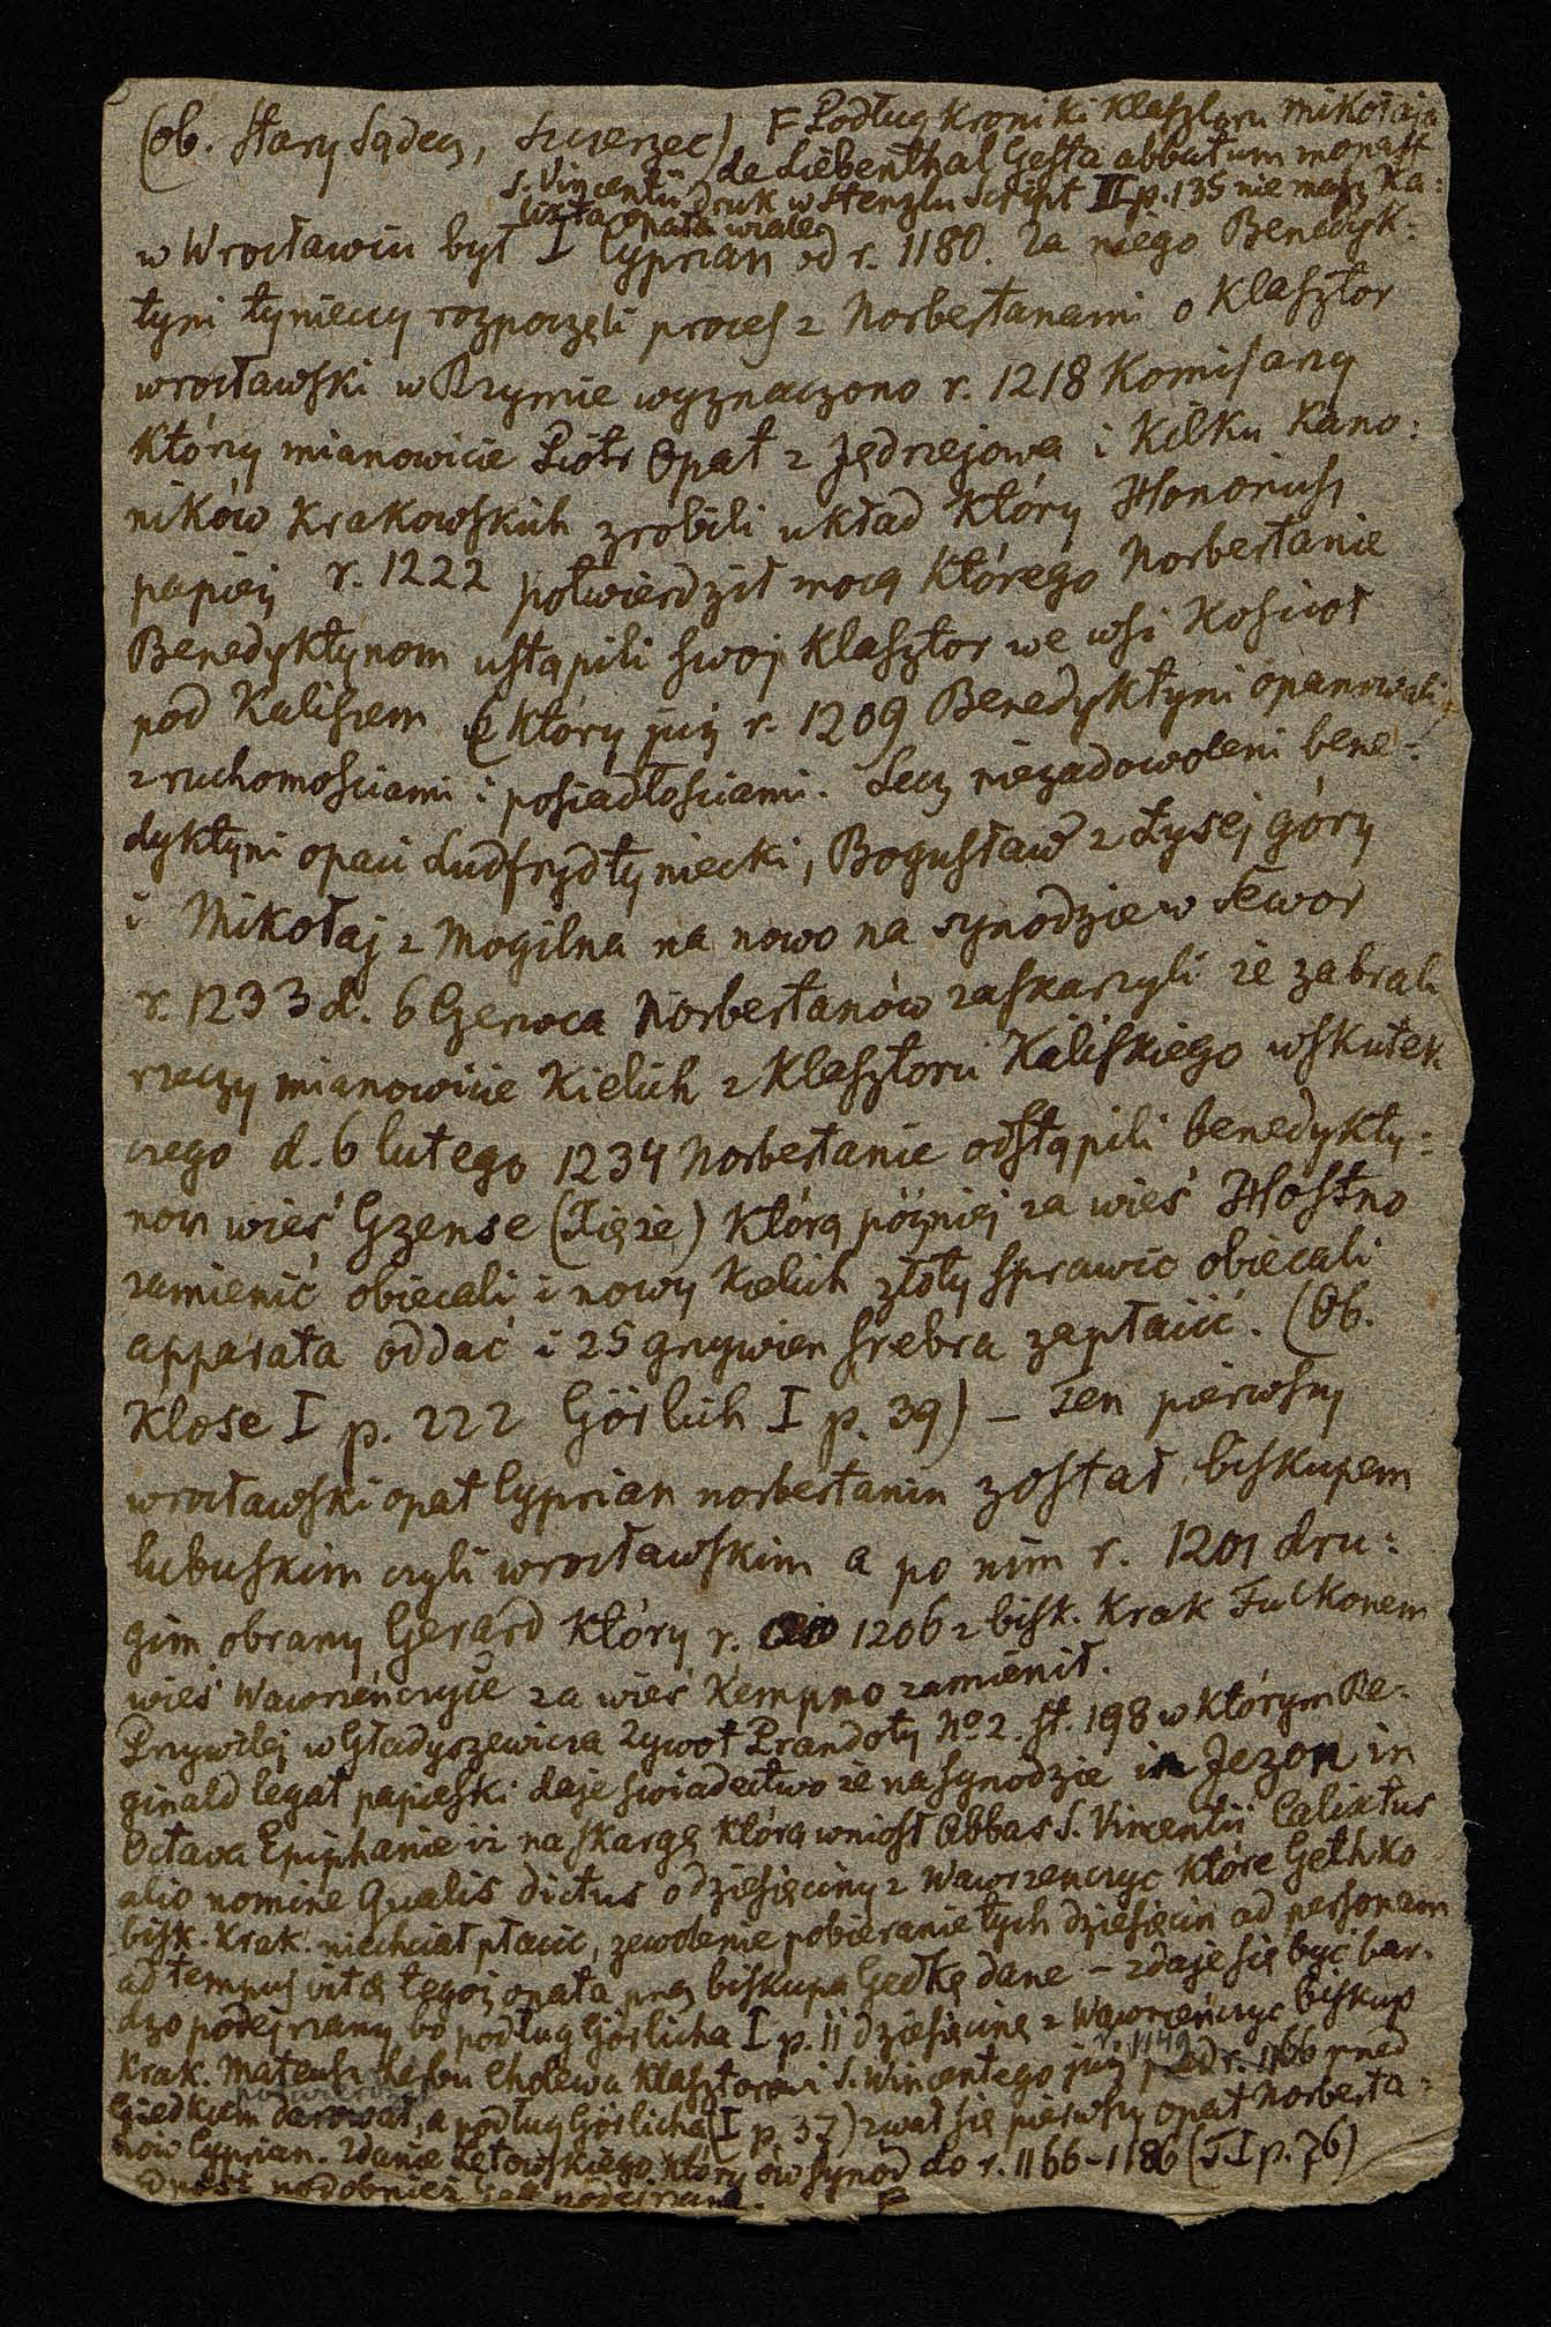 (ob. Stary Sądecz, Zwierzec) F Podług Kroniki Klasztoru Mikołaja
de Liebenthal Gesta abbatum monast
S. Vincentii druk w Stenzlu Script II p. 135 nie masz Ka:
lixta opata wcale
w Wrocławiu był I Cyprian od r. 1180. Za niego Benedyk:
tyni tynieccy rozpoczęli proces z Norbertanami o Klasztor
wrocławski w Rzymie wyznaczono r. 1218 Komisarzy
Którzy mianowicie Piotr Opat z Jędrzejowa i Kilku Kano:
ników Krakowskich zrobili układ Który Honoriusz
papież r. 1222 potwierdził mocą Którego Norbertanie
Benedyktynom ustąpili swój Klasztor we wsi Kościoł
pod Kaliszem (Który już r. 1209 Benedyktyni opanowali)
z ruchomościami i posiadłościami. Lecz niezadowoleni bene:
dyktyni opaci Ludfryd tyniecki, Bogusław z Łysej góry
i Mikołaj z Mogilna na nowo na synodzie w Sewor
r. 1233 d. 6 Czerwca Norbertanów zaskarzyli że zabrali
rzeczy mianowicie Kielich z Klasztoru Kaliskiego wskutek
czego d. 6 lutego 1234 Norbertanie odstąpili benedykty:
nom wieś Gzense (Xięże) Którą później za wieś Hostno
zamienić obiecali i nowy Kielich złoty sprawić obiecali
apparata oddać i 25 grzywien srebra zapłacić. (Ob.
Klose I p. 222 Görlich I p. 39) – Ten pierwszy
wrocławski opat Cyprian norbertanin został biskupem
lubuskim czyli wrocławskim a po nim r. 1201 dru:
gim obrany Gerard Który r. 1206 z bisk. Krak Fulkonem
wieś Wawrzeńczyce za wieś Kempno zamienił.
Przywilej w Gładyszewicza Zywot Prandoty No 2. st. 198 w Którym Re:
ginald legat papieski daje świadectwo że na synodzie in Jezon in
Octava Epiphanie iż na skargę Którą wniosł Abbas S. Vincentii Calixtus
alio nomine Qualis dictus o dziesięciny z Wawrzenczyc Które Gethko
bisk. Krak. niechciał płacić, zewolenie pobieranie tych dziesięcin ad personam
ad tempus vitæ tegoż opata przez biskupa Gedkę dane – zdaje się być bar:
dzo podejrzany bo podług Görlicha I p. 11 dziesięcinę z Wawrzeńczyc biskup
Krak. Mateusz herbu Cholewa Klasztorowi S. Wincentego już r. 1149 przed r. 1166 przed
Giedkiem darował, a podług Görlicha (I p. 37) zwał się pierwszy opat Norberta:
nów Cyprian. Zdanie Łętowskiego Który ów synod do r. 1166–1186 (T. I p. 76)
odnosi podobnież jest podejrzane. F